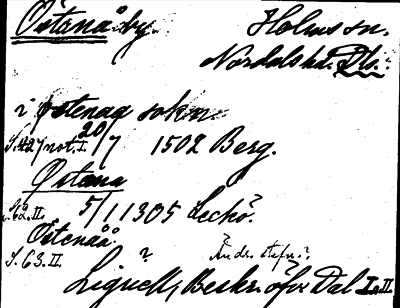 Östanå by. Holms sn.
Nordals hd. Dls.
i østenaa sokn
S. 427 not. I. 20/7 1502 Berg.
Østena
s. 62. II. 5/1 1305 Leckö?
Östenåå
S. 63. II. ? Ändr. stefn.?
Lignell, Beskr. öfver Dal I. II.